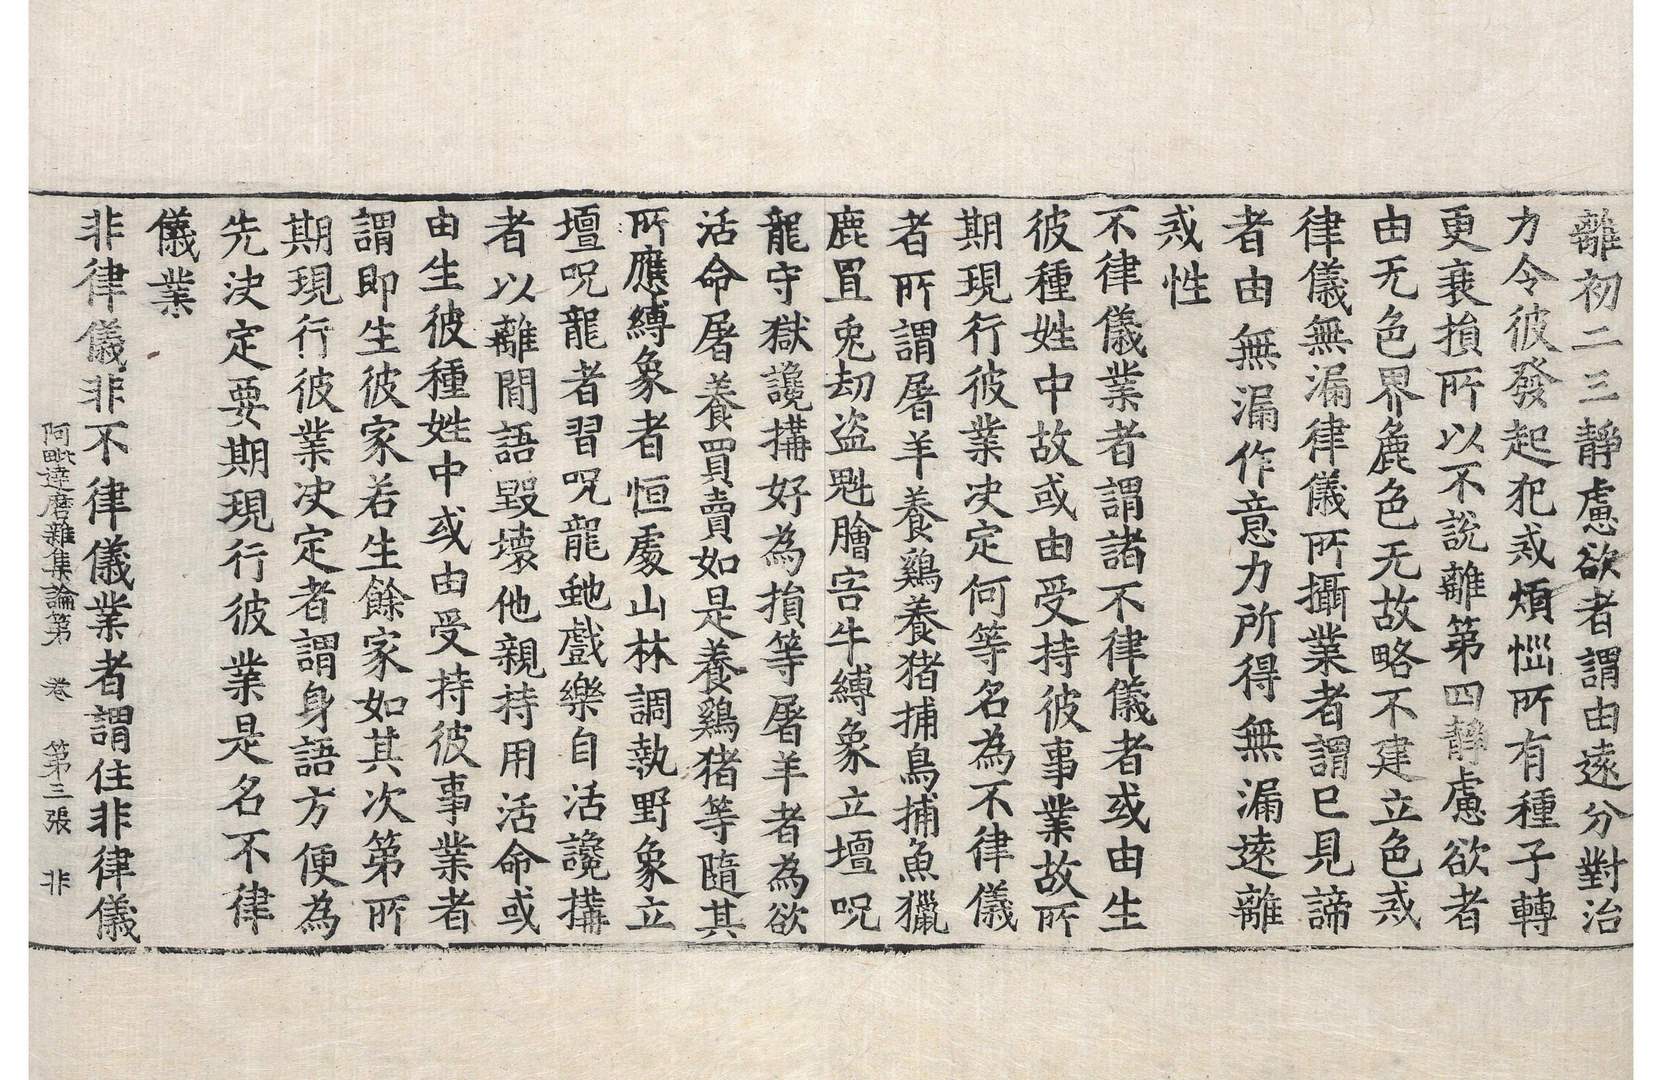 離初二三靜慮欲者謂由遠分對治
力令彼發起犯戒煩惱所有種子轉
更衰損所以不說離第四靜慮欲者
由无色界麁色无故略不建立色戒
律儀無漏律儀所攝業者謂已見諦
者由無漏作意力所得無漏遠離
戒性
不律儀業者謂諸不律儀者或由生
彼種姓中故或由受持彼事業故所
期現行彼業决定何等名為不律儀
者所謂屠羊養鷄養猪捕鳥捕魚獵
鹿罝兎劫盜魁膾害牛縛象立壇呪
龍守獄讒搆好為損等屠羊者為欲
活命屠養買賣如是養鷄猪等隨其
所應縛象者恒處山林調執野象立
壇呪龍者習呪龍虵戲樂自活讒搆
者以離間語毀壞他親持用活命或
由生彼種姓中或由受持彼事業者
謂即生彼家若生餘家如其次第所
期現行彼業决定者謂身語方便為
先决定要期現行彼業是名不律
儀業
非律儀非不律儀業者謂住非律儀
阿毗達磨雜集論第 卷 第三張 非